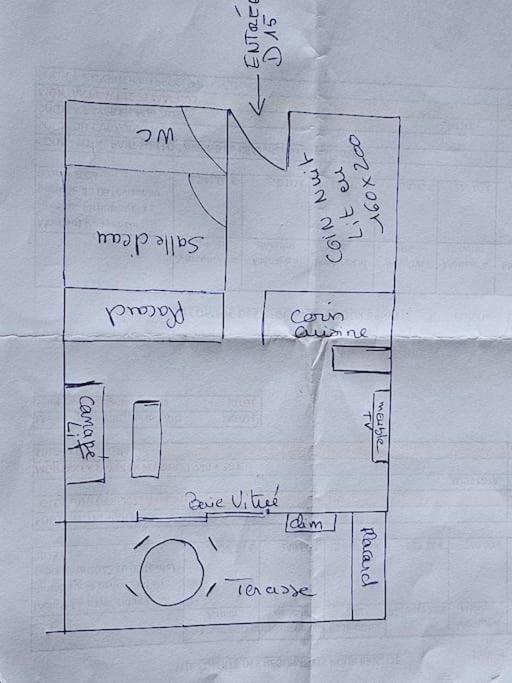 ENTRÉE
D15
WC
COIN Nuit
Lit en
160 x 200
Salle d'eau
Placard
Coin
Cuisine
Canapé
Lit
meuble
TV
Baie Vitrée
Clim
Placard
Terasse